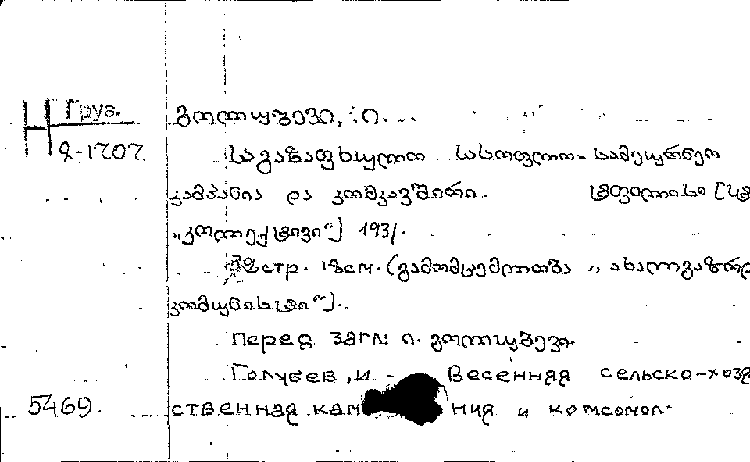 Н Груз. გოლუბევი, ი.
2-1707 საგაზაფხულო სასოფლო-სამეურნეო
კამპანია და კომკავშირი. ტფილისი [სტ
„კოლექტივი“] 1931.
стр. 18см. (გამომცემლობა „ახალგაზრდ
კომუნისტი“).
Перед загл: ი. გოლუბევი.
Голубев, И - Весенняя сельско-хозя
5469. ственная кам ния и комсомол.